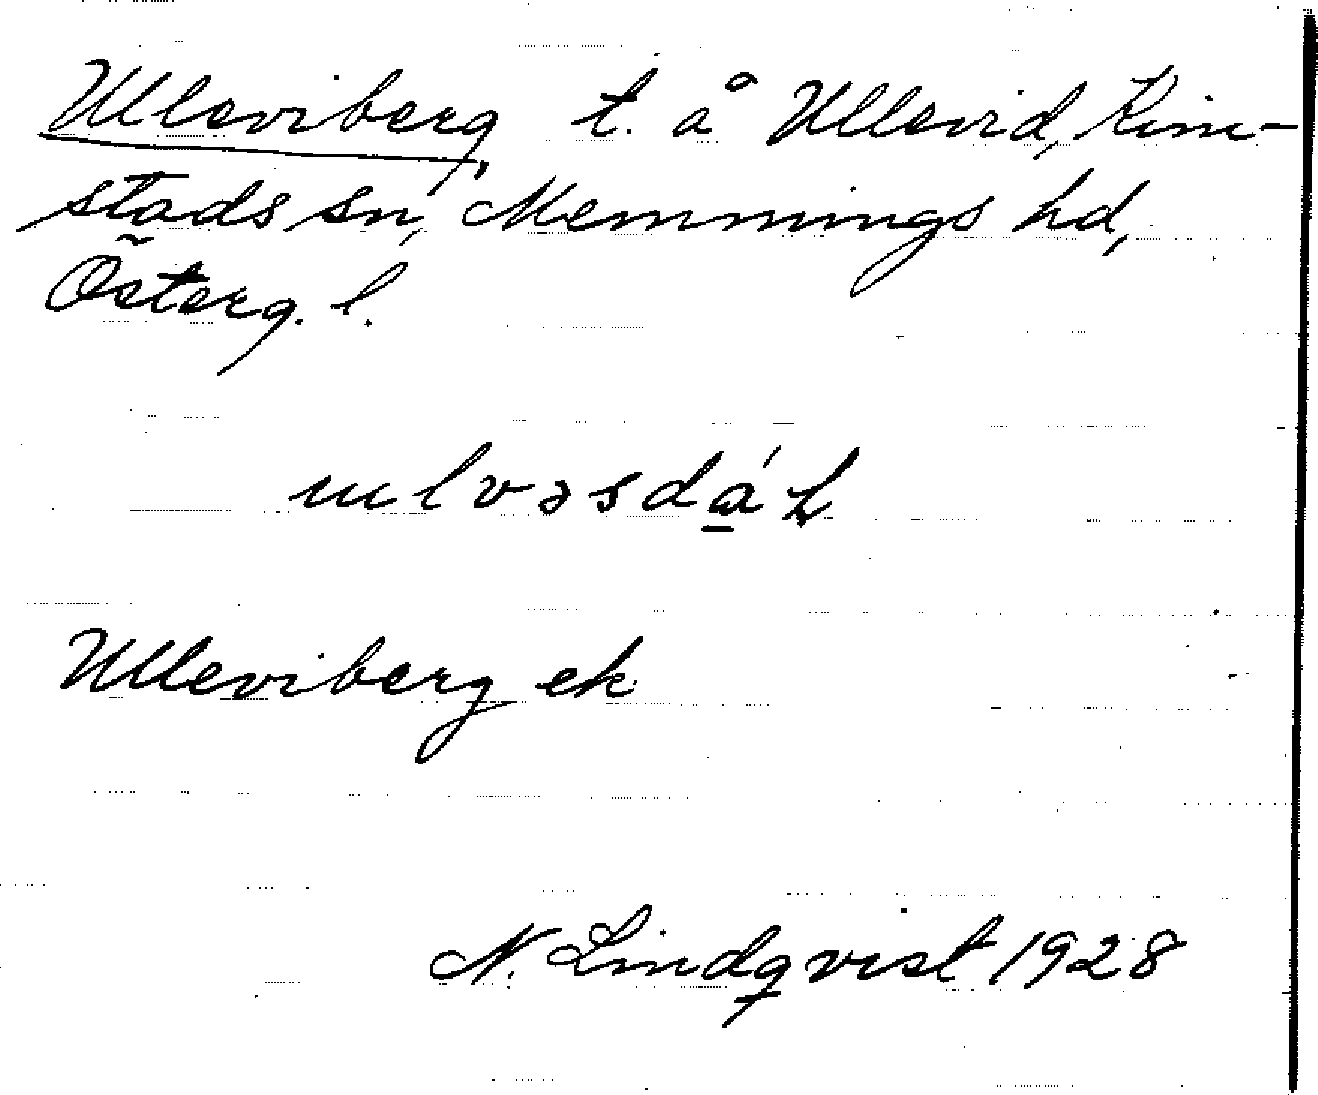 Ulleviberg, t. å Ullevid, Kim-
stads sn, Memmings hd,
Österg. l.
ulvəsdáḷ
Ulleviberg ek
N. Lindqvist 1928